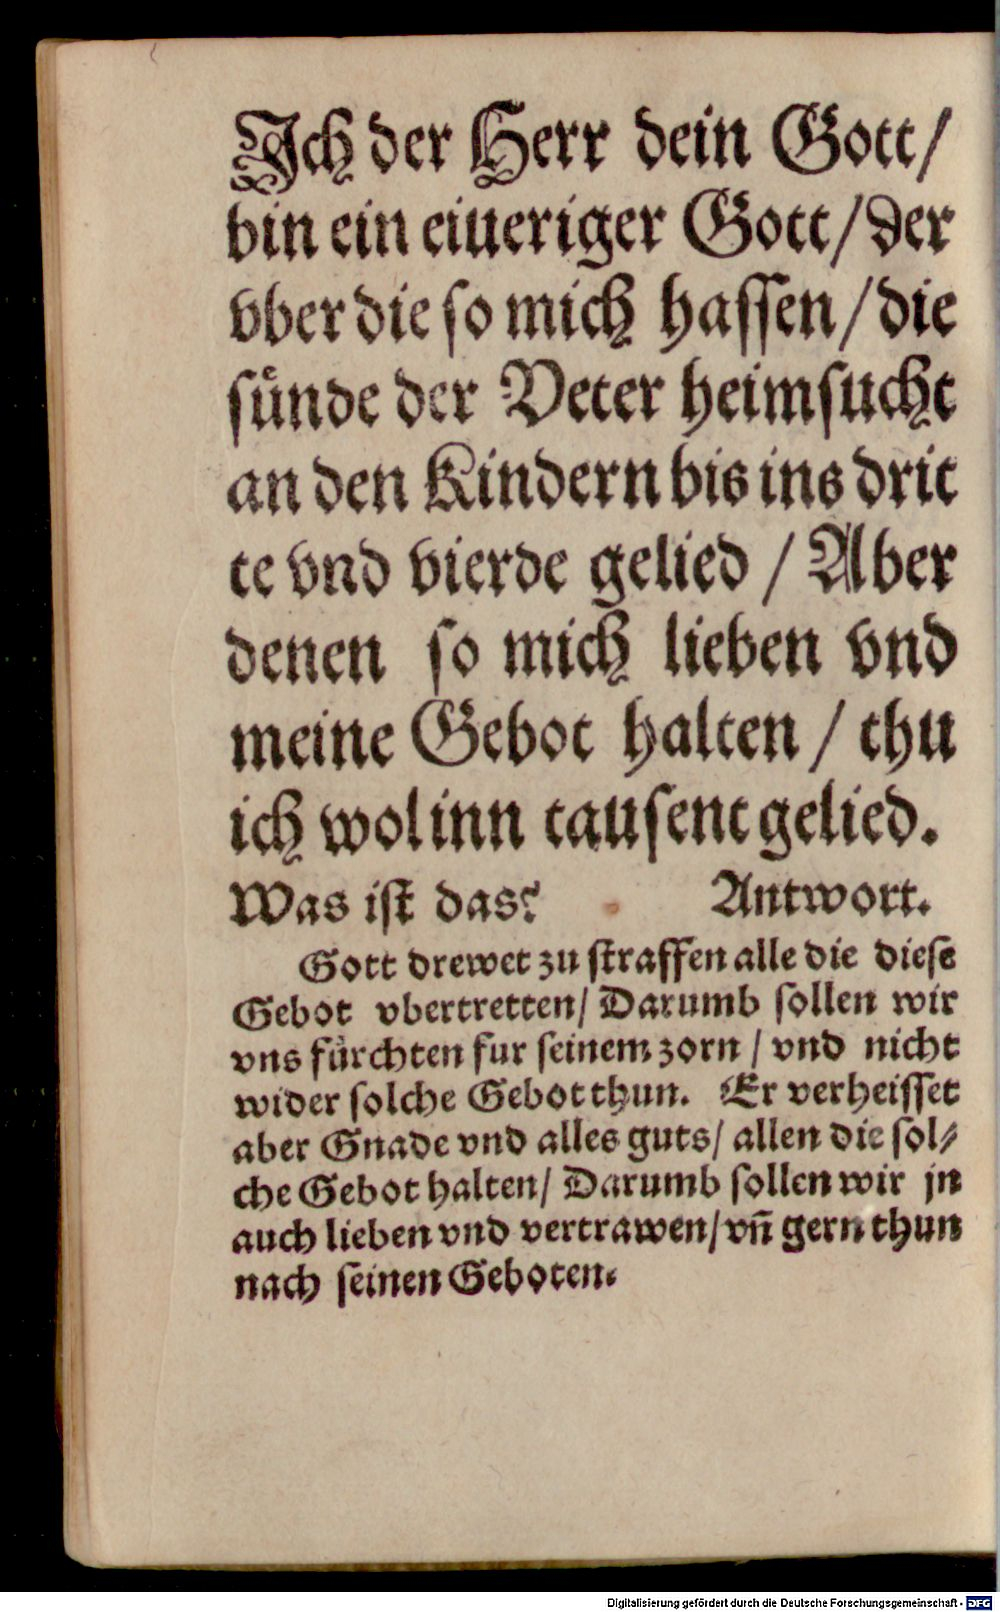 Ich der Herr dein Gott/
bin ein eiueriger Gott/der
vber die so mich hassen/die
sünde der Veter heimsucht
an den Kindern bis ins drit
te vnd vierde gelied / Aber
denen so mich lieben vnd
meine Gebot halten / thu
ich wol inn tausent gelied.
Was ist das? Antwort.
Gott drewet zu straffen alle die diese
Gebot vbertretten/ Darumb sollen wir
vns fürchten fur seinem zorn / vnd nicht
wider solche Gebot thun. Er verheisset
aber Gnade vnd alles guts/ allen die sol⸗
che Gebot halten/ Darumb sollen wir jn
auch lieben vnd vertrawen/ vñ gern thun
nach seinen Geboten.
Digitalisierung gefördert durch die Deutsche Forschungsgemeinschaft - DFG